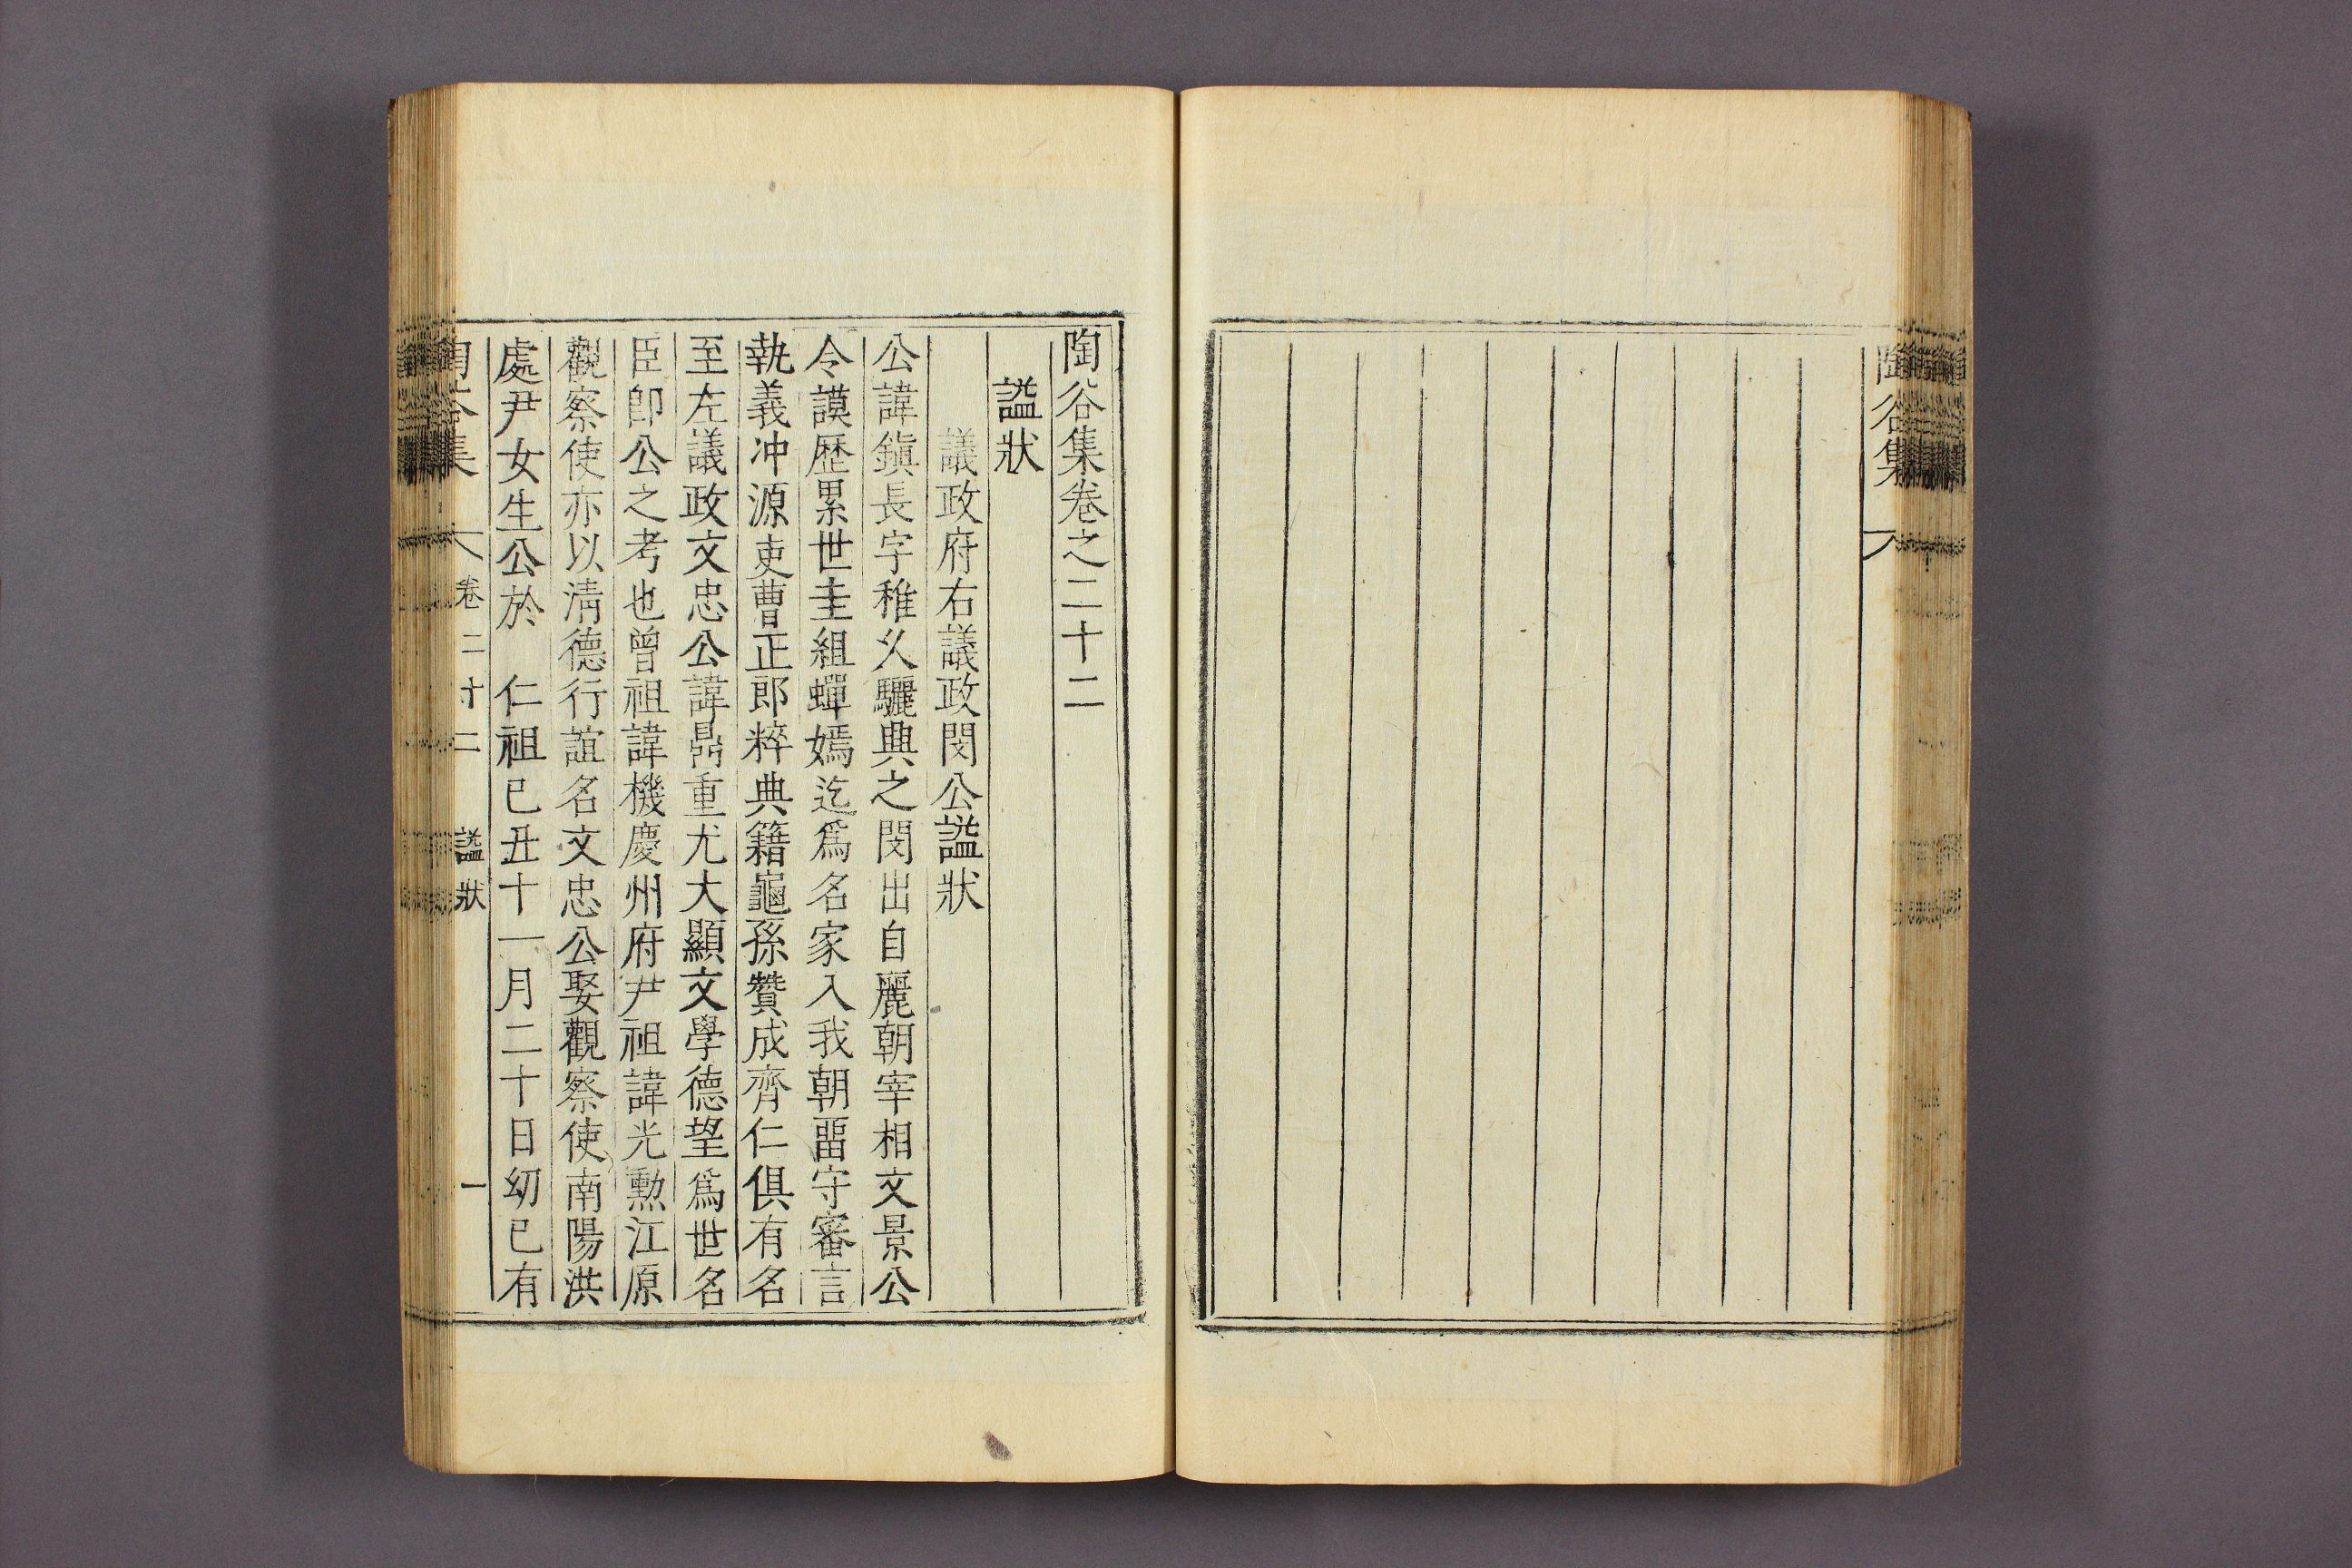 陶谷集
陶谷集卷之二十二
諡狀
議政府右議政閔公諡狀
公諱鎭長字稚久驪興之閔出自麗朝宰相文景公
令謨歷累世圭組蟬嫣迄爲名家入我朝畱守審言
執義冲源吏曹正郎粹典籍龜孫贊成齊仁俱有名
至左議政文忠公諱鼎重尤大顯文學德望爲世名
臣卽公之考也曾祖諱機慶州府尹祖諱光勳江原
觀察使亦以淸德行誼名文忠公娶觀察使南陽洪
處尹女生公於 仁祖已丑十一月二十日幼已有
陶谷集 卷二十二 諡狀 一